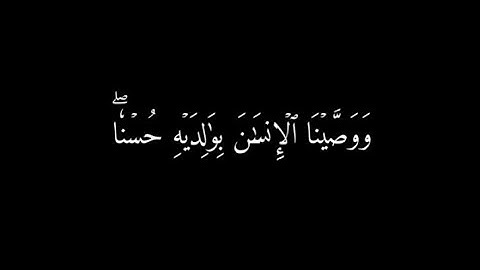 وَوَصَّيۡنَا ٱلۡإِنسَٰنَ بِوَٰلِدَيۡهِ حُسۡنٗاۖ